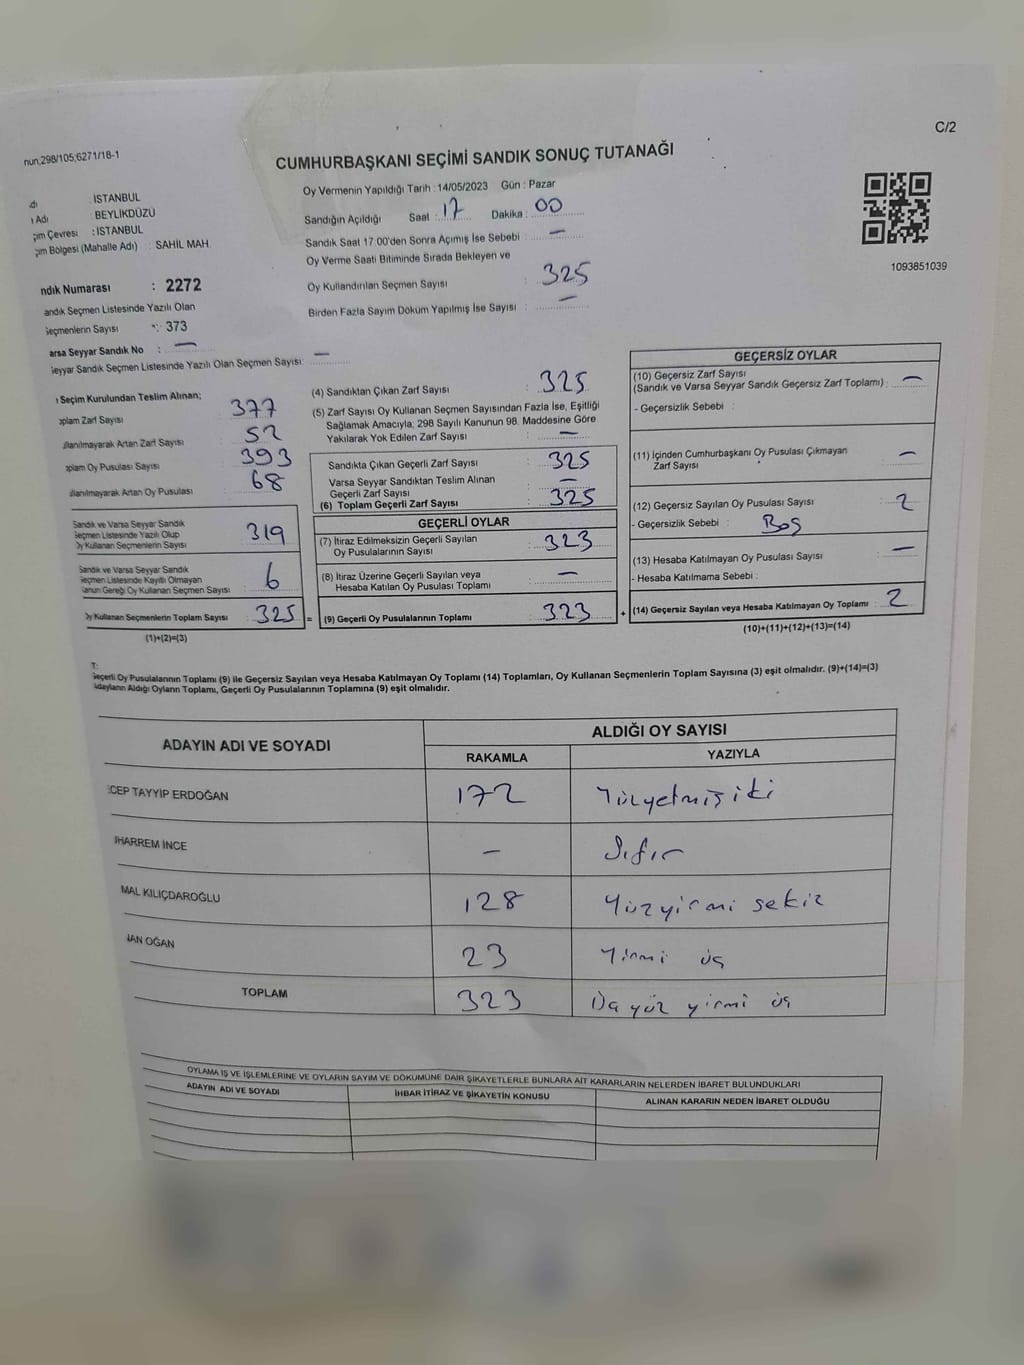 nun,298/105;6271/18-1
C/2
CUMHURBAŞKANI SEÇİMİ SANDIK SONUÇ TUTANAĞI
: İSTANBUL
ı Adı : BEYLİKDÜZÜ
çim Çevresi : İSTANBUL
çim Bölgesi (Mahalle Adı) : SAHİL MAH.
ndık Numarası : 2272
andık Seçmen Listesinde Yazılı Olan
Seçmenlerin Sayısı : 373
arsa Seyyar Sandık No : —
Seyyar Sandık Seçmen Listesinde Yazılı Olan Seçmen Sayısı: —
Oy Vermenin Yapıldığı Tarih : 14/05/2023 Gün : Pazar
Sandığın Açıldığı Saat : 17 Dakika : 00
Sandık Saat 17.00'den Sonra Açımış İse Sebebi : —
Oy Verme Saati Bitiminde Sırada Bekleyen ve
Oy Kullandırılan Seçmen Sayısı : 325
Birden Fazla Sayım Döküm Yapılmış İse Sayısı : —
1093851039
ı Seçim Kurulundan Teslim Alınan;
oplam Zarf Sayısı : 377
ullanılmayarak Artan Zarf Sayısı : 52
oplam Oy Pusulası Sayısı : 393
ullanılmayarak Artan Oy Pusulası : 68
Sandık ve Varsa Seyyar Sandık
Seçmen Listesinde Yazılı Olup
Oy Kullanan Seçmenlerin Sayısı : 319
Sandık ve Varsa Seyyar Sandık
Seçmen Listesinde Kayıtlı Olmayan
Kanun Gereği Oy Kullanan Seçmen Sayısı : 6
Oy Kullanan Seçmenlerin Toplam Sayısı : 325 =
(1)+(2)=(3)
(4) Sandıktan Çıkan Zarf Sayısı : 325
(5) Zarf Sayısı Oy Kullanan Seçmen Sayısından Fazla İse, Eşitliği
Sağlamak Amacıyla; 298 Sayılı Kanunun 98. Maddesine Göre
Yakılarak Yok Edilen Zarf Sayısı : —
Sandıkta Çıkan Geçerli Zarf Sayısı : 325
Varsa Seyyar Sandıktan Teslim Alınan
Geçerli Zarf Sayısı : —
(6) Toplam Geçerli Zarf Sayısı : 325
GEÇERLİ OYLAR
(7) İtiraz Edilmeksizin Geçerli Sayılan
Oy Pusulalarının Sayısı : 323
(8) İtiraz Üzerine Geçerli Sayılan veya
Hesaba Katılan Oy Pusulası Toplamı : —
(9) Geçerli Oy Pusulalarının Toplamı : 323 +
GEÇERSİZ OYLAR
(10) Geçersiz Zarf Sayısı
(Sandık ve Varsa Seyyar Sandık Geçersiz Zarf Toplamı) : —
- Geçersizlik Sebebi :
(11) İçinden Cumhurbaşkanı Oy Pusulası Çıkmayan
Zarf Sayısı : —
(12) Geçersiz Sayılan Oy Pusulası Sayısı : 2
- Geçersizlik Sebebi : Boş
(13) Hesaba Katılmayan Oy Pusulası Sayısı : —
- Hesaba Katılmama Sebebi :
(14) Geçersiz Sayılan veya Hesaba Katılmayan Oy Toplamı : 2
(10)+(11)+(12)+(13)=(14)
T:
Geçerli Oy Pusulalarının Toplamı (9) ile Geçersiz Sayılan veya Hesaba Katılmayan Oy Toplamı (14) Toplamları, Oy Kullanan Seçmenlerin Toplam Sayısına (3) eşit olmalıdır. (9)+(14)=(3)
Adayların Aldığı Oyların Toplamı, Geçerli Oy Pusulalarının Toplamına (9) eşit olmalıdır.
ADAYIN ADI VE SOYADI
ALDIĞI OY SAYISI
RAKAMLA YAZIYLA
CEP TAYYİP ERDOĞAN 172 Yüzyetmişiki
HARREM İNCE — Sıfır
MAL KILIÇDAROĞLU 128 Yüzyirmi sekiz
NAN OĞAN 23 Yirmi üç
TOPLAM 323 Üçyüz yirmi üç
OYLAMA İŞ VE İŞLEMLERİNE VE OYLARIN SAYIM VE DÖKÜMÜNE DAİR ŞİKAYETLERLE BUNLARA AİT KARARLARIN NELERDEN İBARET BULUNDUKLARI
ADAYIN ADI VE SOYADI İHBAR İTİRAZ VE ŞİKAYETİN KONUSU ALINAN KARARIN NEDEN İBARET OLDUĞU